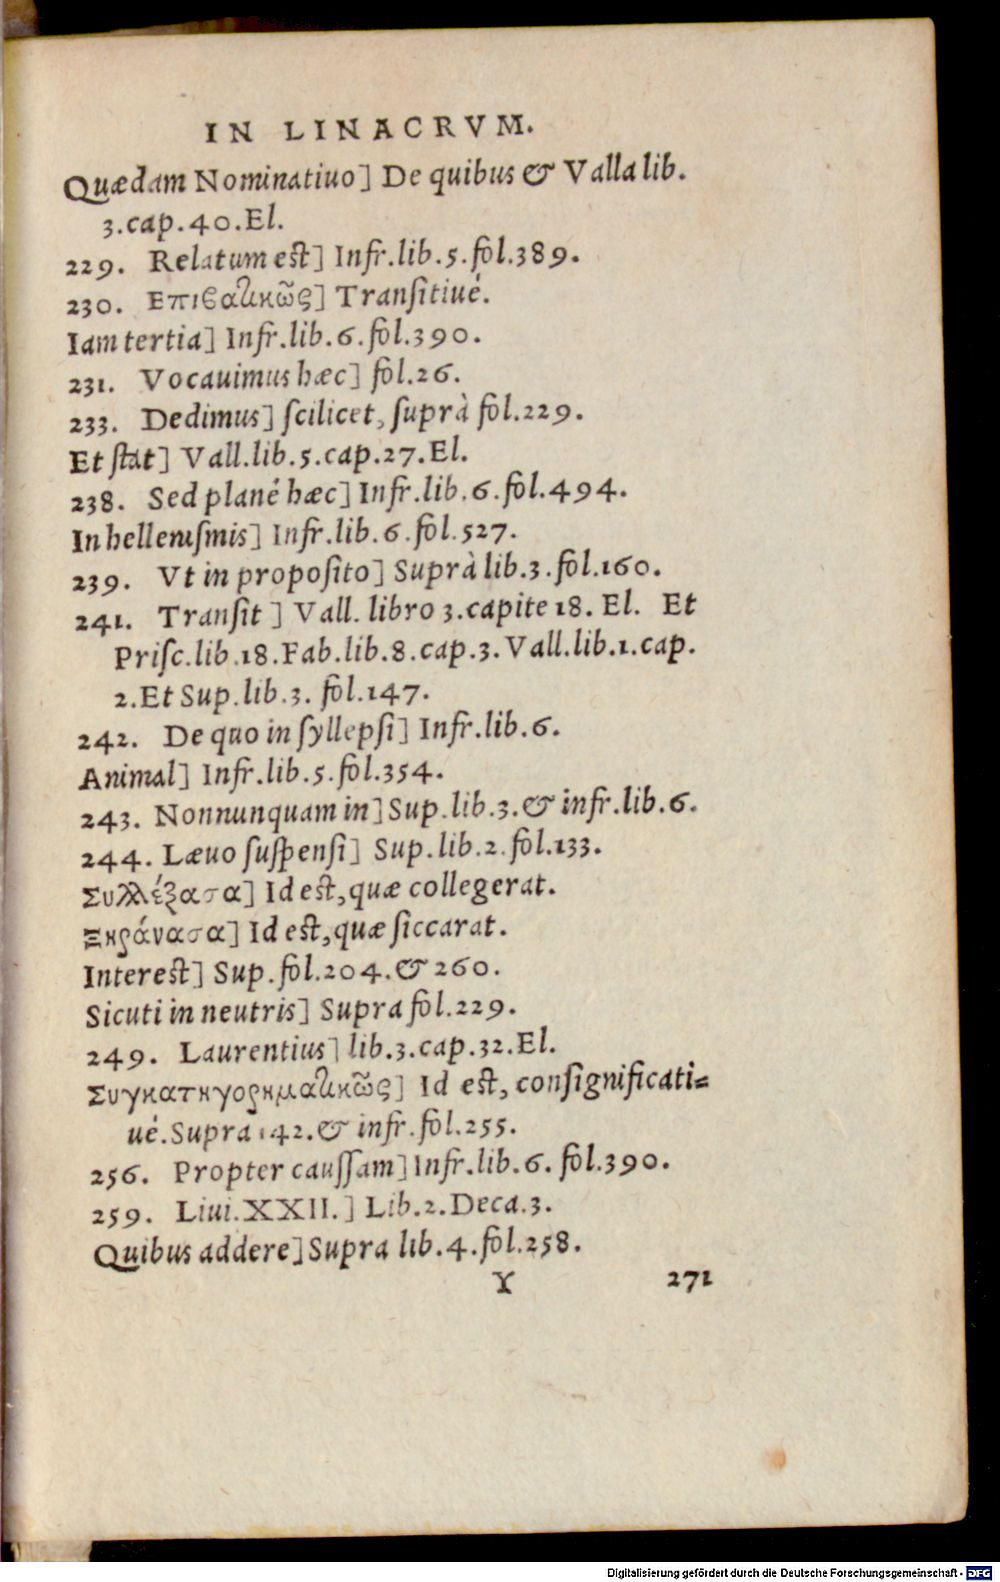 IN LINACRVM.
Quædam Nominatiuo] De quibus & Valla lib.
3.cap.40.El.
229. Relatum est] Infr.lib.5.fol.389.
230. Επιβατικῶς] Transitiué.
Iam tertia] Infr.lib.6.fol.390.
231. Vocauimus hæc] fol.26.
233. Dedimus] ſcilicet, ſuprà fol.229.
Et ſtat] Vall.lib.5.cap.27.El.
238. Sed plané hæc] Infr.lib.6.fol.494.
In helleniſmis] Infr.lib.6.fol.527.
239. Vt in propoſito] Suprà lib.3.fol.160.
241. Tranſit ] Vall. libro 3.capite 18. El. Et
Priſc.lib.18.Fab.lib.8.cap.3.Vall.lib.1.cap.
2.Et Sup.lib.3. fol.147.
242. De quo in ſyllepſi] Infr.lib.6.
Animal] Infr.lib.5.fol.354.
243. Nonnunquam in] Sup.lib.3.& infr.lib.6.
244. Læuo ſuſpenſi] Sup.lib.2.fol.133.
Συλλέξασα] Id eſt, quæ collegerat.
Ξηράνασα] Id eſt, quæ ſiccarat.
Intereſt] Sup.fol.204.& 260.
Sicuti in neutris] Supra fol.229.
249. Laurentius] lib.3.cap.32.El.
Συγκατηγορηματικῶς] Id eſt, conſignificati-
ué.Supra 142.& infr.fol.255.
256. Propter cauſſam] Infr.lib.6. fol.390.
259. Liui.XXII.] Lib.2.Deca.3.
Quibus addere] Supra lib.4.fol.258.
Y 271
Digitalisierung gefördert durch die Deutsche Forschungsgemeinschaft - DFG